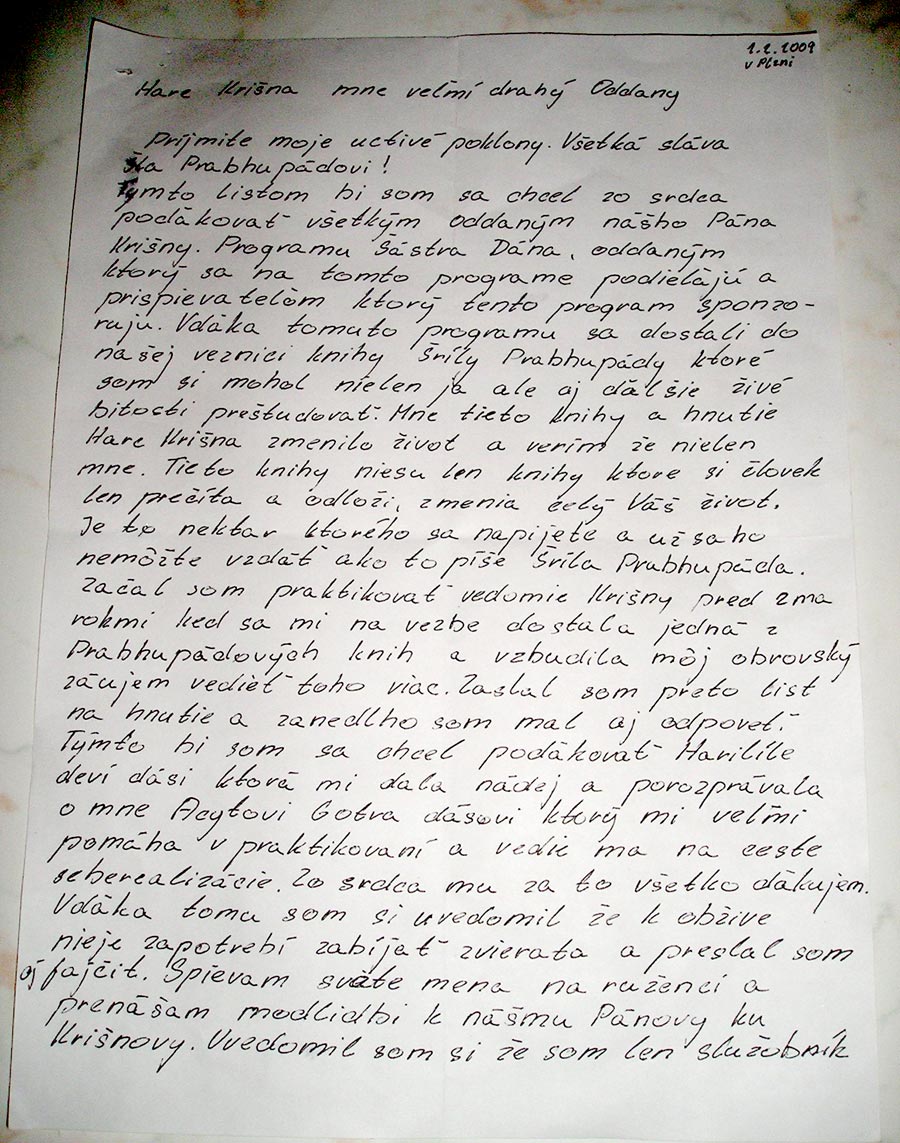 1.2.2009
v Plzni
Hare Krišna mne veľmi drahý Oddany
Príjmite moje uctivé poklony. Všetká sláva
Šla Prabhupádovi!
Tymto listom bi som sa chcel zo srdca
podákovať všetkým oddaným nášho Pána
Krišny. Programu Šástra Dána, oddaným
ktorý sa na tomto programe podielajú a
prispievatelom ktorý tento program sponzo-
ruju. Vdáka tomuto programu sa dostali do
našej veznici knihy Šríly Prabhupády ktoré
som si mohol nielen ja ale aj dálšie živé
bitosti preštudovať. Mne tieto knihy a hnutie
Hare Krišna zmenilo život a verím že nielen
mne. Tieto knihy niesu len knihy ktore si človek
len prečíta a odloži, zmenia celý Váš život.
Je to nektar ktorého sa napijete a už sa ho
nemôžte vzdáť ako to píše Šríla Prabhupáda.
Začal som praktikovať vedomie Krišny pred 2ma
rokmi ked sa mi na vezbe dostala jedná z
Prabhupádových knih a vzbudila môj obrovský
záujem vedieť toho viac. Zaslal som preto list
na hnutie a zanedlho som mal aj odpoveť.
Týmto bi som sa chcel podákovať Harilíle
deví dási ktorá mi dala nádej a porozprávala
o mne Acytovi Gotra dásovi ktorý mi veľmi
pomáha v praktikovaní a vedie ma na ceste
seberealizácie. Zo srdca mu za to všetko dákujem.
Vdáka tomu som si uvedomil že k obžive
nieje zapotrebí zabíjať zvierata a preslal som
aj fajčit. Spievam sväte mena na ruženci a
prenášam modlidbi k nášmu Pánovy ku
Krišnovy. Uvedomil som si že som len služobník